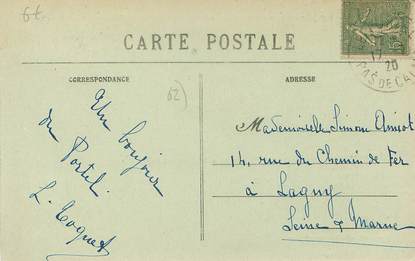 6t
CARTE POSTALE
17
20
PAS DE CALAIS
CORRESPONDANCE
ADRESSE
62)
Un bonjour
du Portel
L. Coquet
Mademoiselle Simone Amiot
14, rue du Chemin de Fer
à Lagny
Seine & Marne